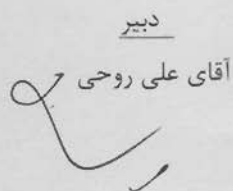 دبیر
آقای علی روحی